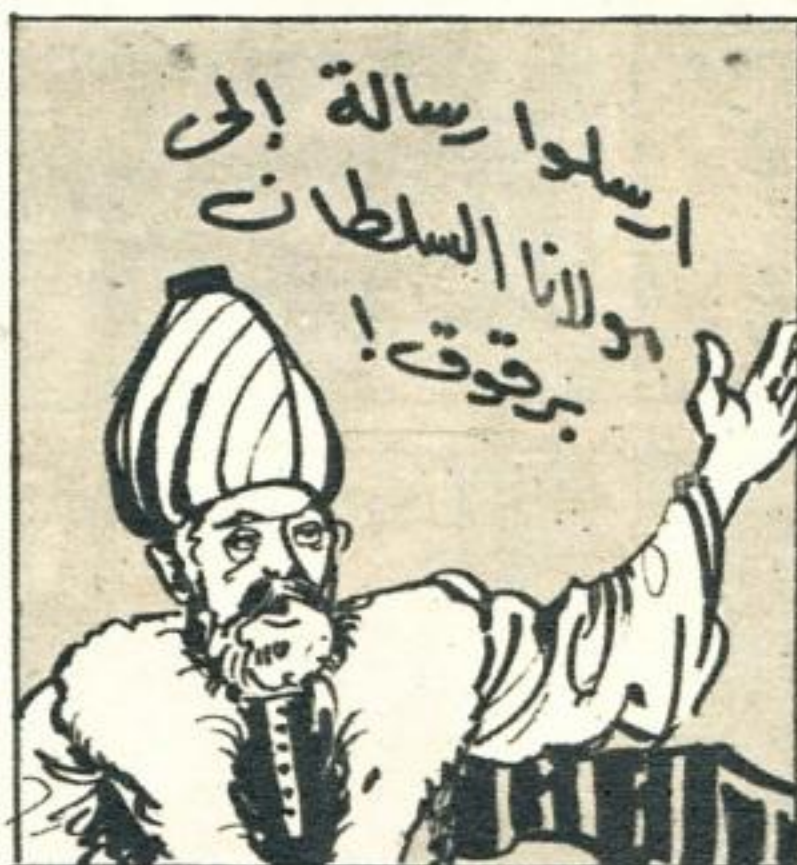 ارسلوا رسالة إلى
مولانا السلطان
برقوق!